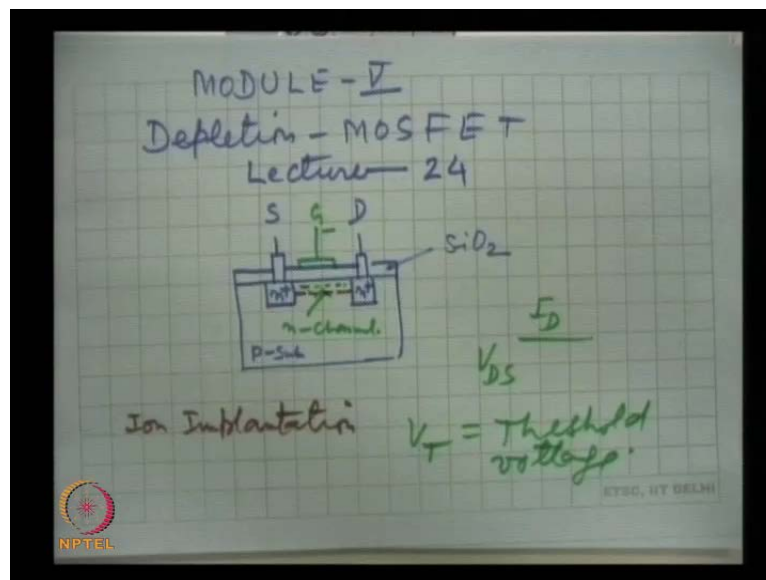 MODULE - V
Depletion - MOSFET
Lecture — 24
S G D
SiO2
n+ n+
n-Channel
P-Sub
ID
VDS
Ion Implantation
VT = Theshold
voltage.
ETSC, IIT DELHI
NPTEL